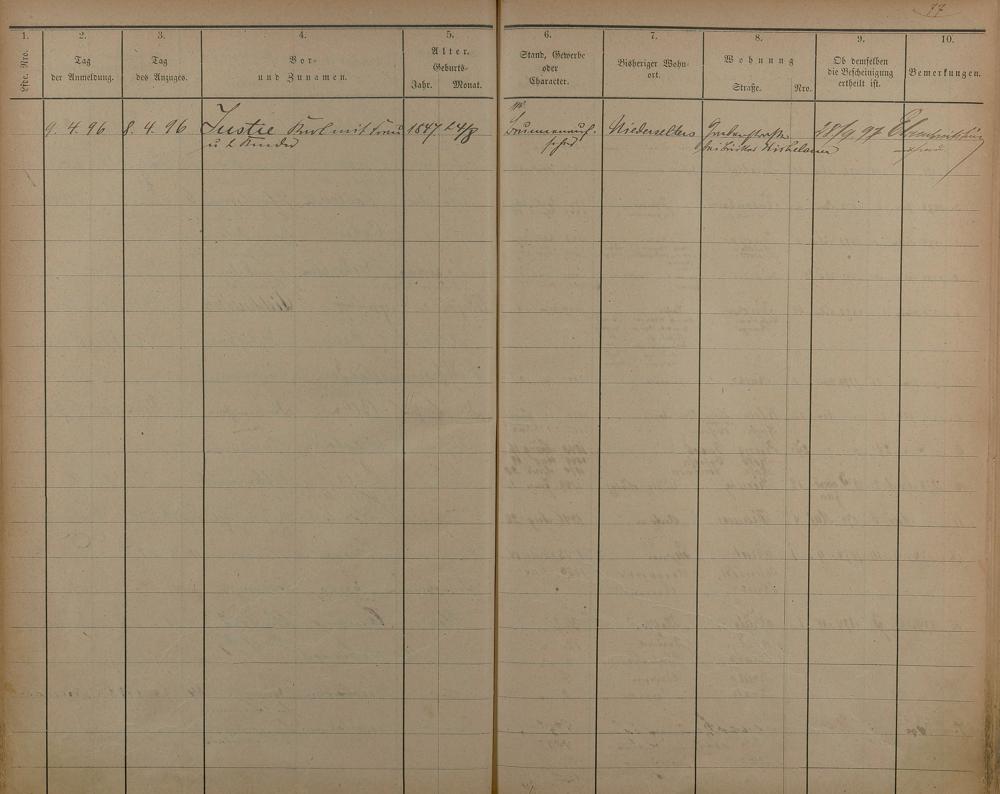 77
1. 2. 3. 4. 5. 6. 7. 8. 9. 10.
Lfde. Nro.
Tag
der Anmeldung.
Tag
des Anzuges.
Vor-
und Zunamen.
Alter.
Geburts-
Jahr. Monat.
Stand, Gewerbe
oder
Character.
Bisheriger Wohn-
ort.
Wohnung
Straße. Nro.
Ob demselben
die Bescheinigung
ertheilt ist.
Bemerkungen.
9. 4. 96 8. 4. 96 Justie Karl mit Frau 1847 24/8 Brunnenauf- Niederselters Grabenstraße 28/9 97
u 2 Kinder seher bei